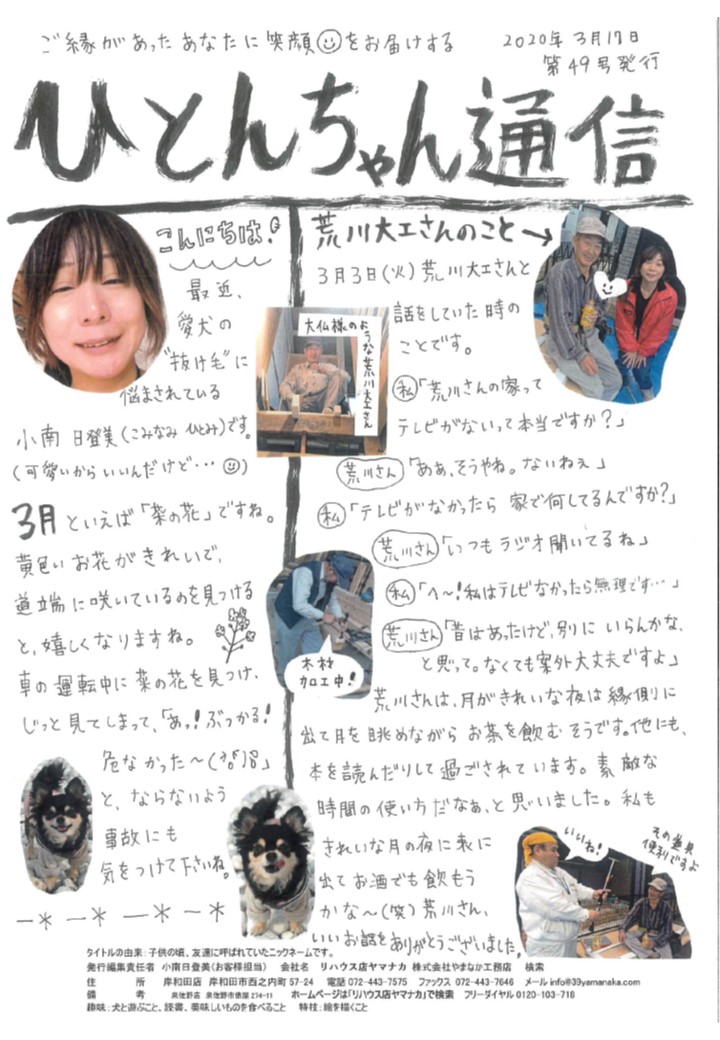 ご縁があったあなたに笑顔をお届けする
2020年3月17日
第49号発行
ひとんちゃん通信
こんにちは!
最近、
愛犬の
"抜け毛"に
悩まされている
小南 日登美(こみなみ ひとみ)です。
(可愛いからいいんだけど…☺)
3月といえば「菜の花」ですね。
黄色いお花がきれいで、
道端に咲いているのを見つける
と、嬉しくなりますね。
車の運転中に菜の花を見つけ、
じっと見てしまって、「あっ!ぶつかる!
危なかった〜
と、ならないよう
事故にも
気をつけて下さいね。
荒川大工さんのこと→
3月3日(火)荒川大工さんと
話をしていた時の
ことです。
私「荒川さんの家って
テレビがないって本当ですか?」
荒川さん「ああ、そうやね。ないねぇ」
私「テレビがなかったら 家で何してるんですか?」
荒川さん「いつもラジオ聞いてるね」
私「へ〜!私はテレビなかったら無理です…」
荒川さん「昔はあったけど、別に いらんかな、
と思って。なくても案外大丈夫ですよ」
荒川さんは、月がきれいな夜は縁側に
出て月を眺めながら お茶を飲むそうです。他にも、
本を読んだりして過ごされています。素敵な
時間の使い方だなぁ、と思いました。私も
きれいな月の夜に表に
出てお酒でも飲もう
かな〜(笑)荒川さん、
いいお話をありがとうございました。
大仏様のよ
うな荒川大工さん
木材
加工中!
いいね!
その道具
便利ですよ
タイトルの由来:子供の頃、友達に呼ばれていたニックネームです。
発行編集責任者 小南日登美(お客様担当) 会社名 リハウス店ヤマナカ 株式会社やまなか工務店 検索
住 所 岸和田店 岸和田市西之内町57-24 電話 072-443-7575 ファックス 072-443-7646 メール info@39yamanaka.com
備 考 泉佐野店 泉佐野市俵屋274-11 ホームページは「リハウス店ヤマナカ」で検索 フリーダイヤル 0120-103-718
趣味:犬と遊ぶこと、読書、美味しいものを食べること 特技:絵を描くこと